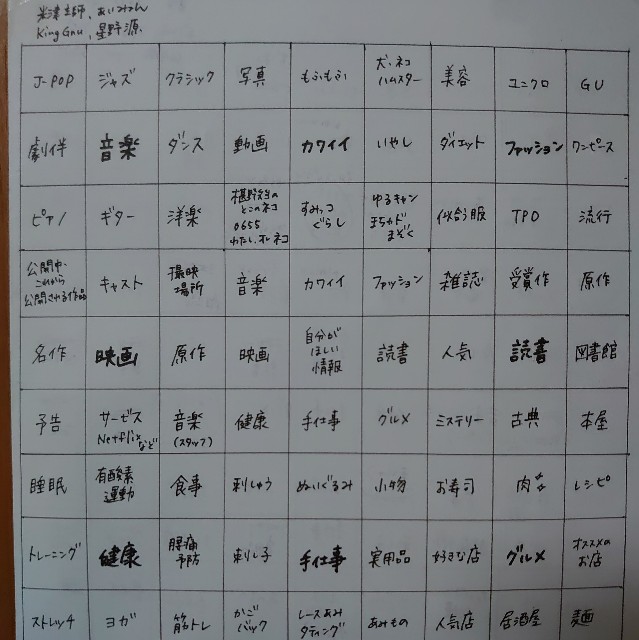 米津玄師、あいみょん
King Gnu、星野源、
J-POP ジャズ クラシック 写真 もふもふ 犬、ネコ ハムスター 美容 ユニクロ GU
劇伴 音楽 ダンス 動画 カワイイ いやし ダイエット ファッション ワンピース
ピアノ ギター 洋楽 椹野先生の とこのネコ 0655 わたし、ネコ すみっこ ぐらし ゆるキャン まちカド まぞく 似合う服 TPO 流行
公開中、 これから 公開される作品 キャスト 撮映 場所 音楽 カワイイ ファッション 雑誌 受賞作 原作
名作 映画 原作 映画 自分が ほしい 情報 読書 人気 読書 図書館
予告 サービス Netflixなど 音楽 (スタッフ) 健康 手仕事 グルメ ミステリー 古典 本屋
睡眠 有酸素 運動 食事 刺しゅう ぬいぐるみ 小物 お寿司 肉 レシピ
トレーニング 健康 腰痛 予防 刺し子 手仕事 実用品 好きな店 グルメ オススメの お店
ストレッチ ヨガ 筋トレ かご バック レースあみ タティング あみもの 人気店 居酒屋 麺